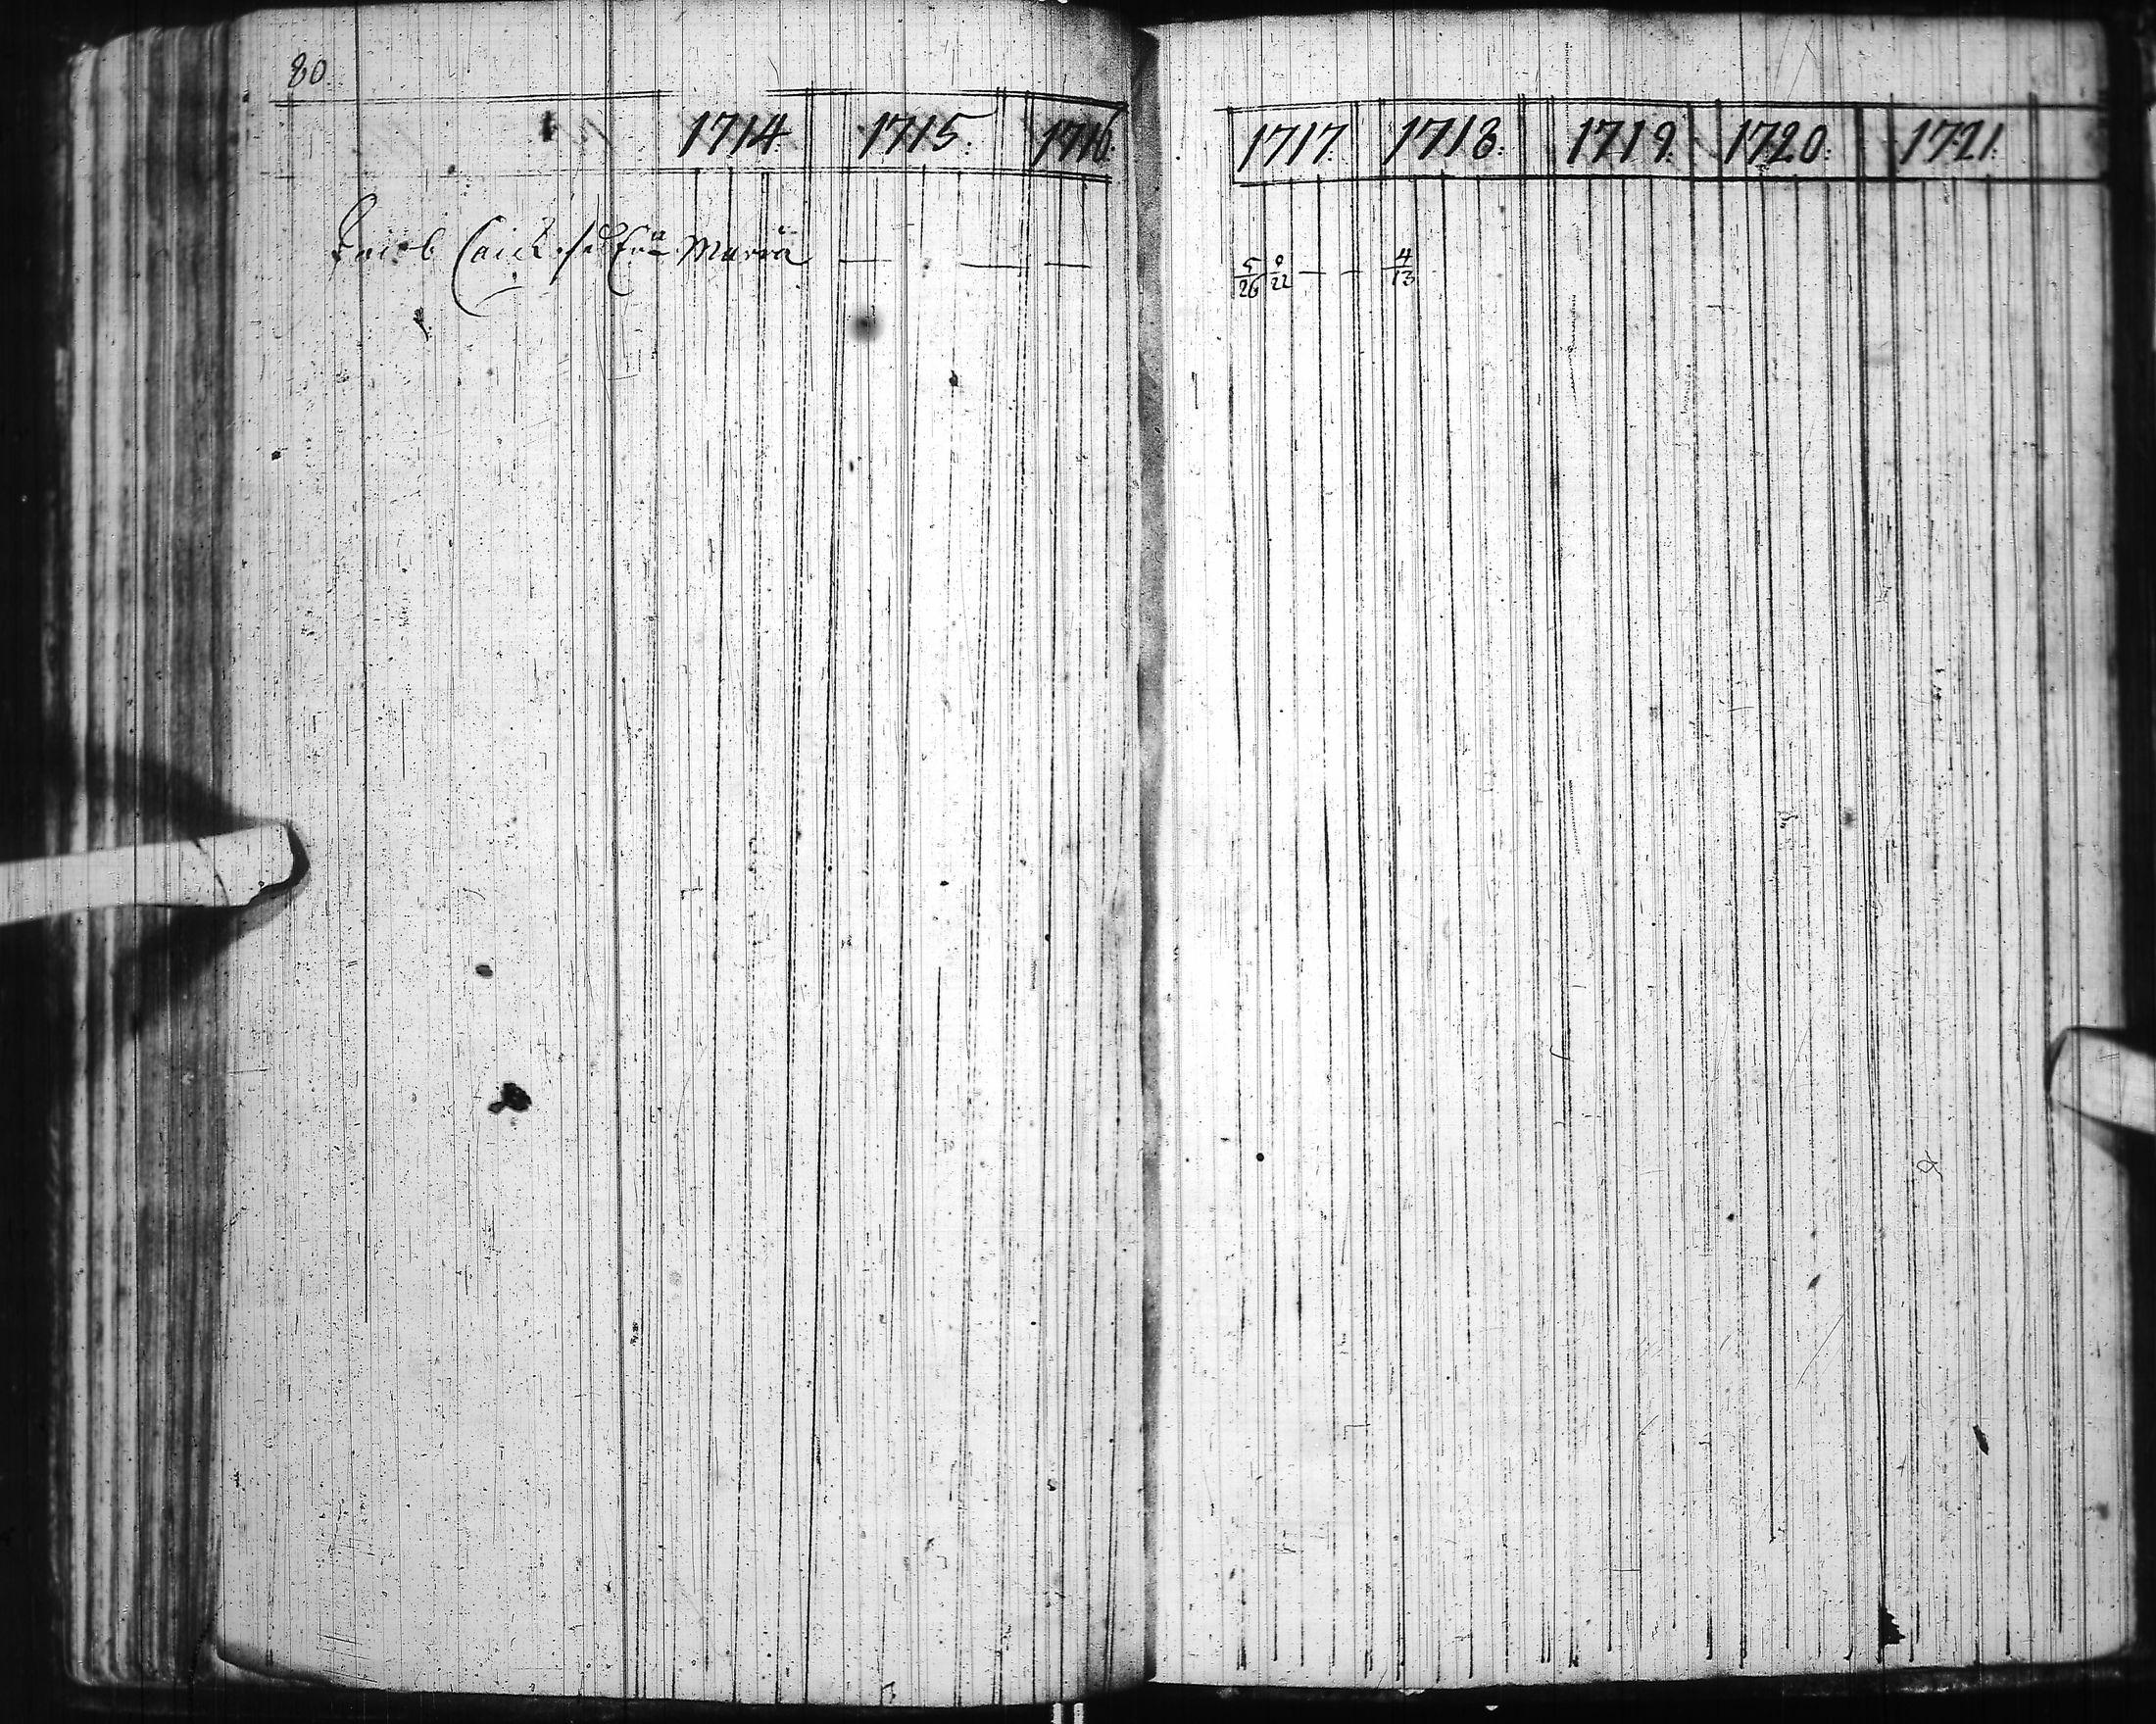 80
1714 1715. 1716. 1717. 1718. 1719. 1720. 1721.
Jacob Maria — — — 5/26 /22 — — 4/13